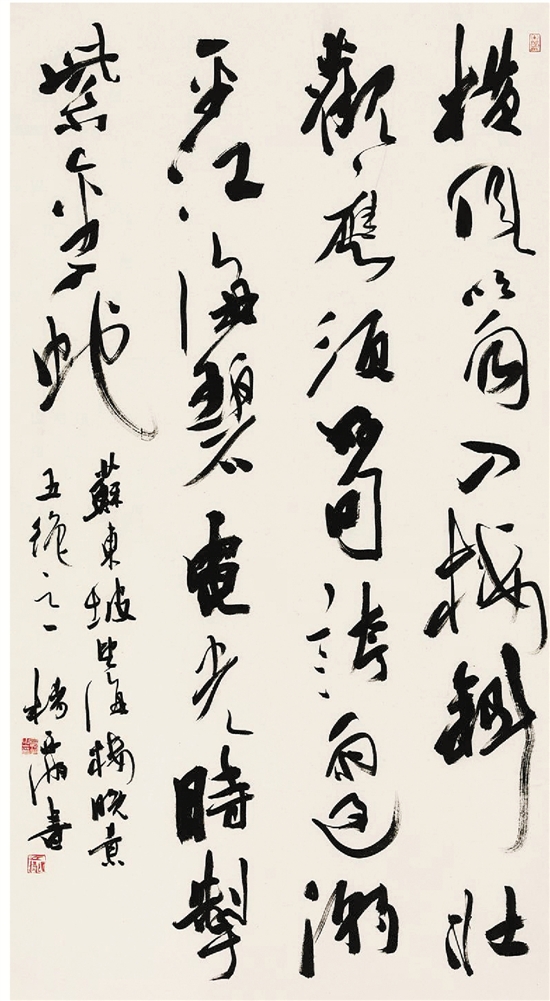 橫風吹雨入樓斜壯
觀應須好句誇雨過潮
平江海碧電光時掣
紫金蛇
蘇東坡望海樓晚景
五絕之一 書